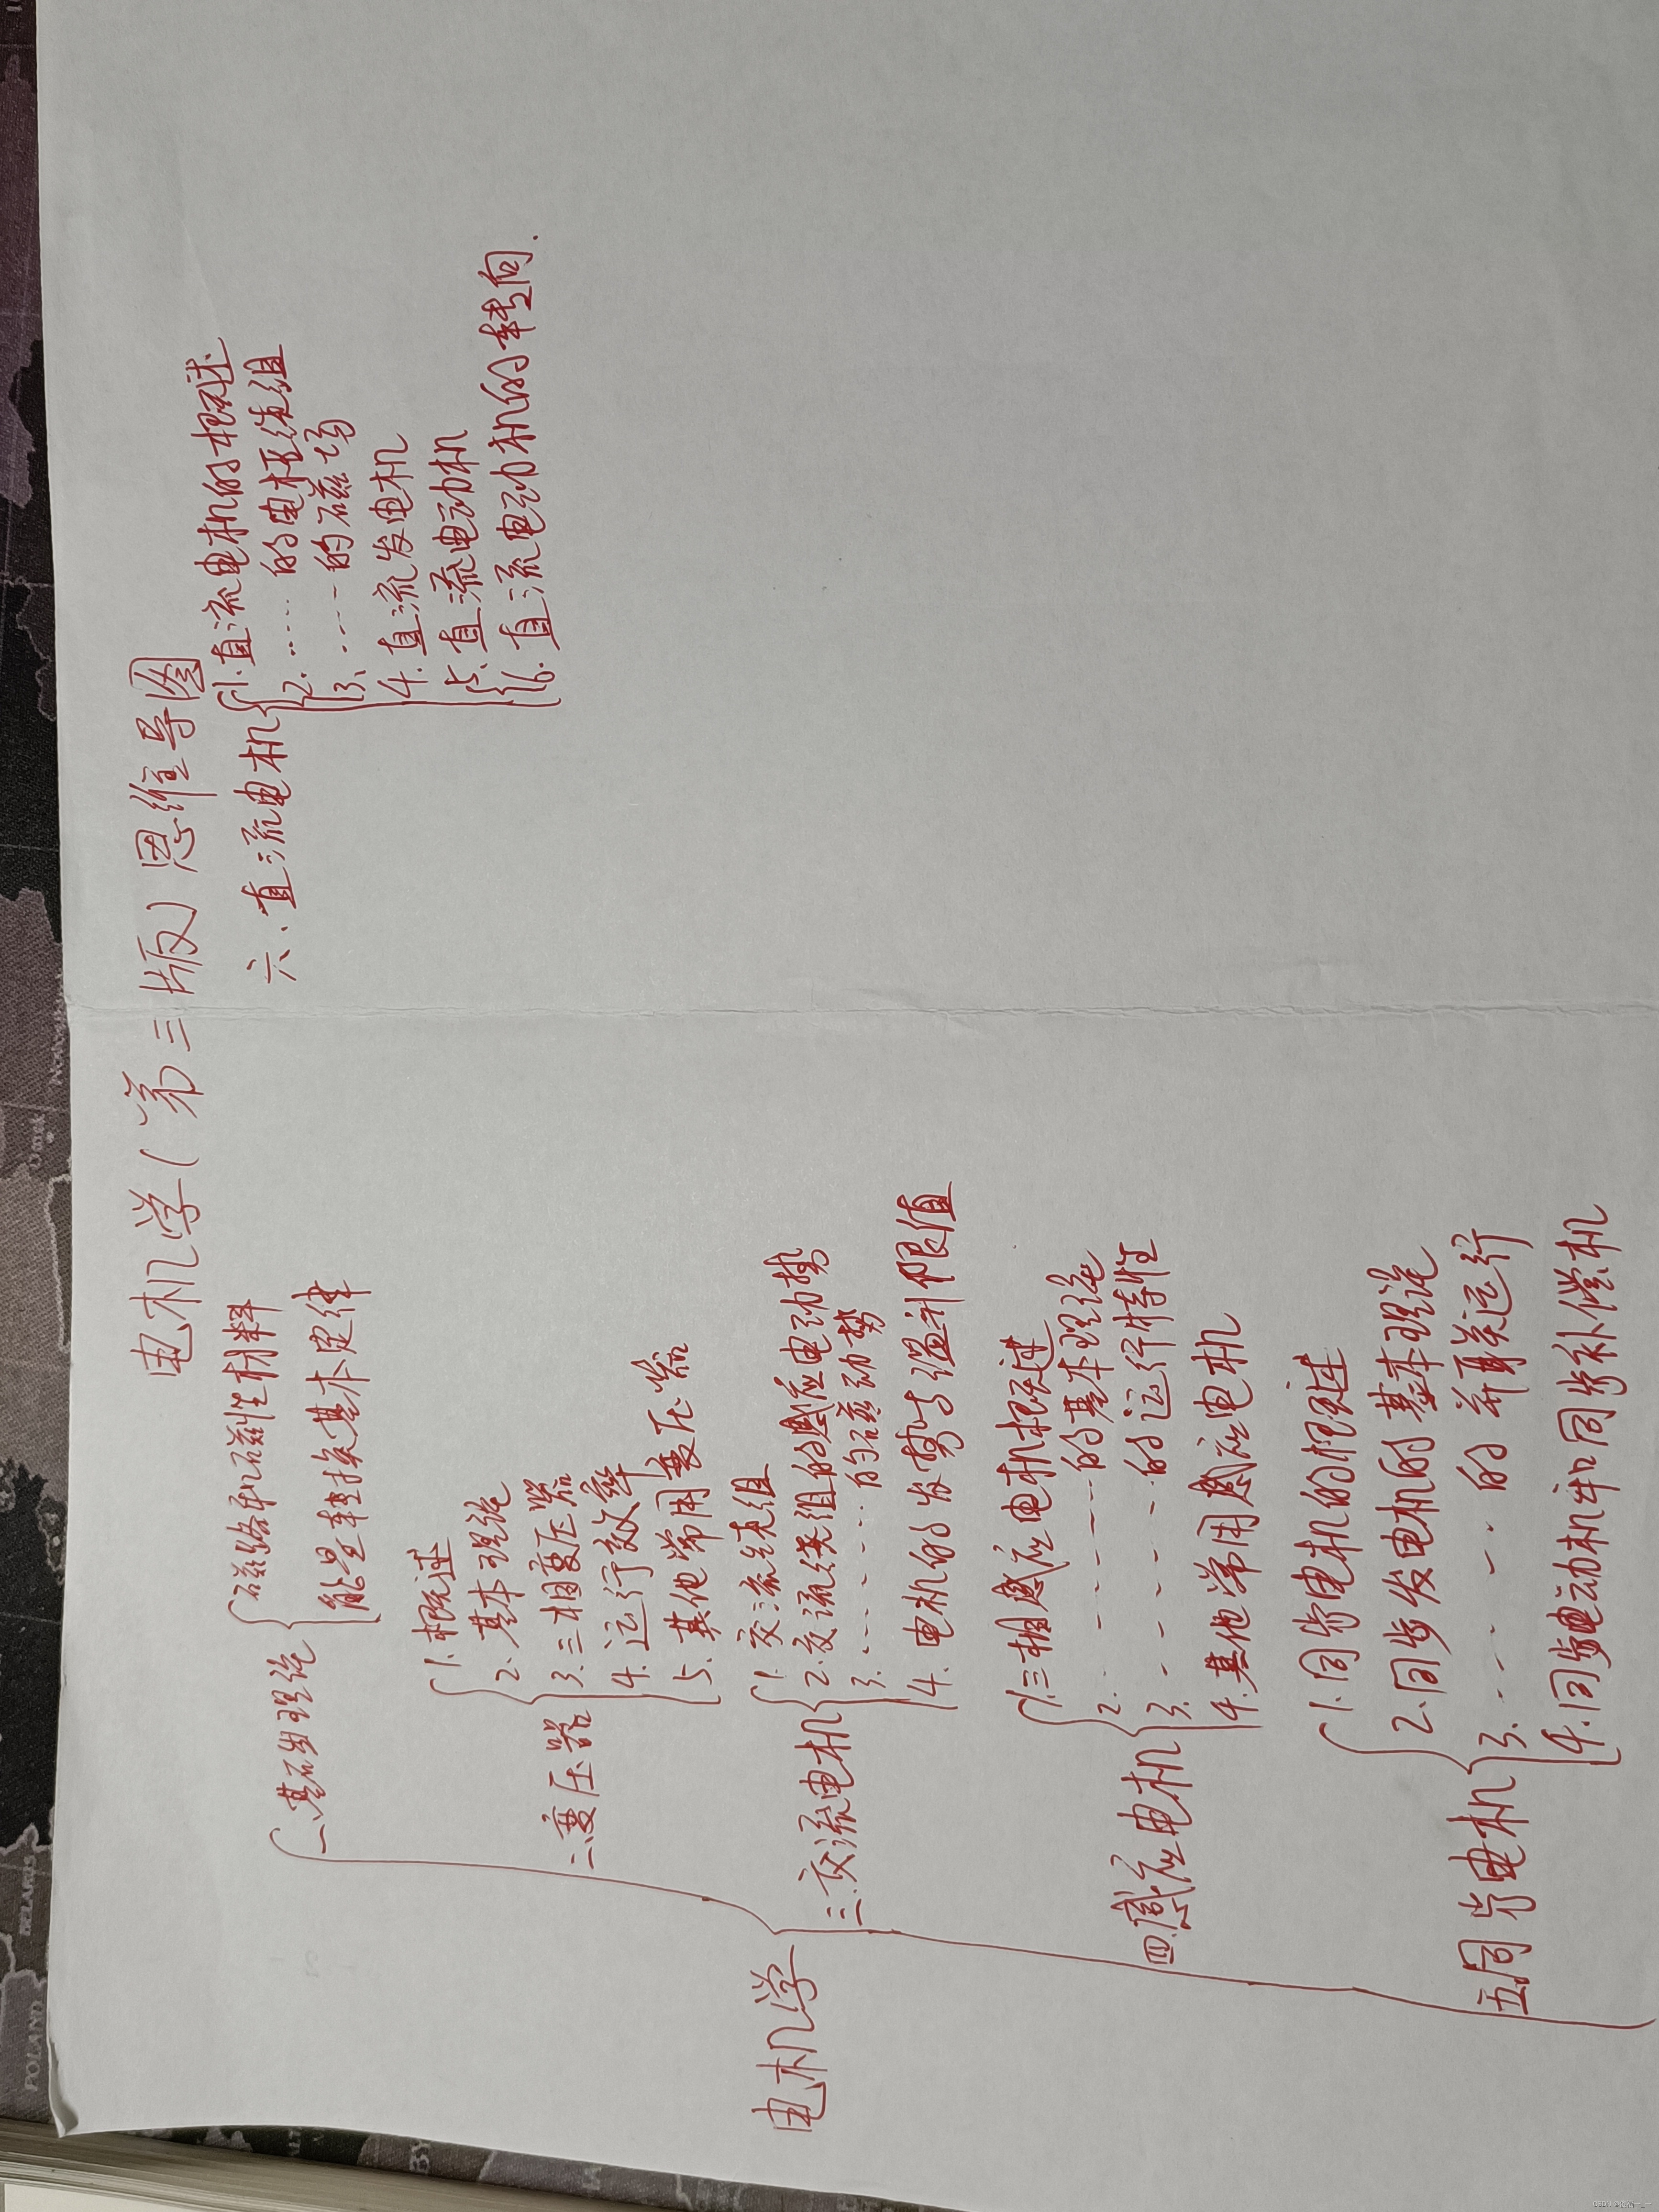 电机学(第三版)思维导图
电机学
一、基础理论
磁路和磁性材料
能量转换基本定律
二、变压器
1.概述
2.基本理论
3.三相变压器
4.运行效率
5.其他常用变压器
三.交流电机
1.交流绕组
2.交流绕组的感应电动势
3.……的磁动势
4.电机的发势与温升限值
四.感应电机
1.三相感应电机概述
2.……的基本理论
3.……的运行特性
4.其他常用感应电机
五.同步电机
1.同步电机的概述
2.同步发电机的基本理论
3.……的并联运行
4.同步电动机和同步补偿机
六、直流电机
1.直流电机的概述
2.……的电枢绕组
3.……的磁场
4.直流发电机
5.直流电动机
6.直流电动机的转向.
POLAND
BELARUS